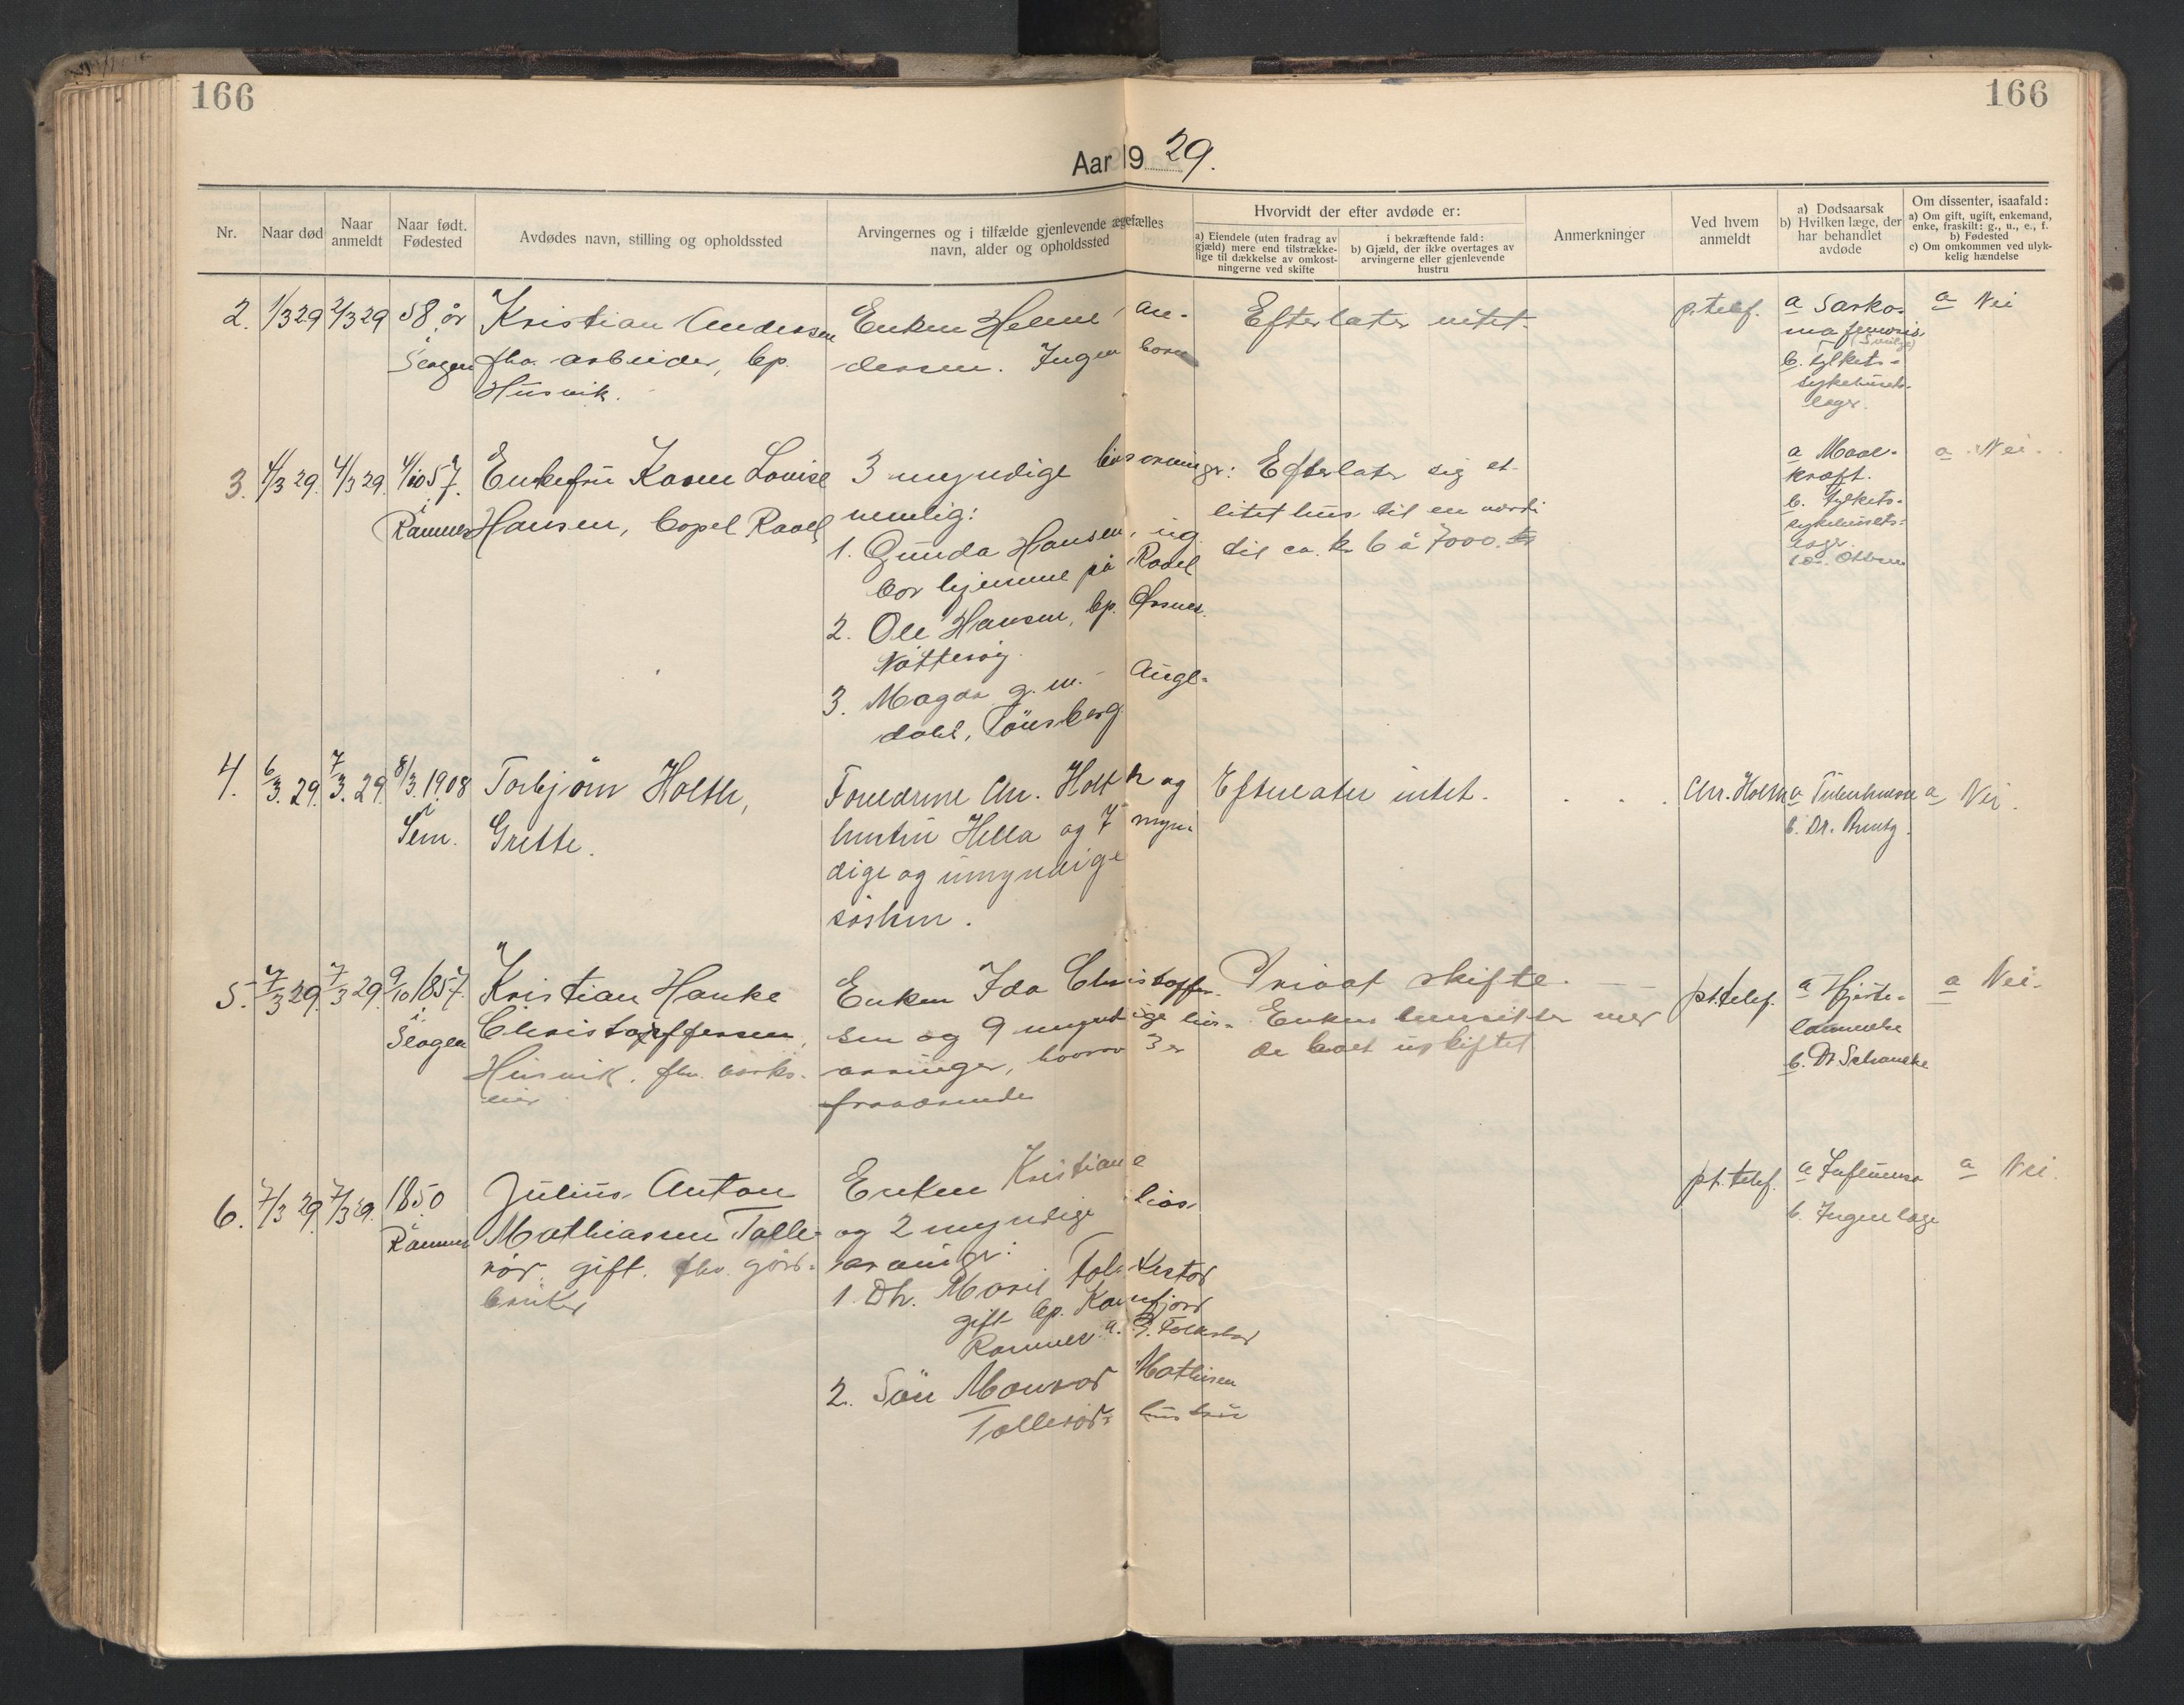 166
166
Aar 19 29.
Nr.
Naar død
Naar
anmeldt
Naar født.
Fødested
Avdødes navn, stilling og opholdssted
Arvingernes og i tilfælde gjenlevende ægtefælles
navn, alder og opholdssted
Hvorvidt der efter avdøde er:
a) Eiendele (uten fradrag av
gjæld) mere end tilstrække-
lige til dækkelse av omkost-
ningerne ved skifte
i bekræftende fald:
b) Gjæld, der ikke overtages av
arvingerne eller gjenlevende
hustru
Anmerkninger
Ved hvem
anmeldt
a) Dødsaarsak
b) Hvilken læge, der
har behandlet
avdøde
Om dissenter, isaafald:
a) Om gift, ugift, enkemand,
enke, fraskilt: g., u., e., f.
b) Fødested
c) Om omkommen ved ulyk-
kelig hændelse
2.
1/3 29
2/3 29
58 år
i
Slagen
Kristian Andersen
fhv. arbeider, bp.
Husvik.
Enken Helene An-
dersen. Ingen barn
Efterlater intet.
p. telef.
a Sarko-
ma femoris
b. fylkets-
sykehusets-
læger.
a Nei
3.
4/3 29.
4/3 29.
4/10 57.
i
Ramnes
Enkefru Karen Louise
Hansen, bopel Raael
3 myndige livsarvinger:
nemlig:
1. Gunda Hansen, ug.
bor hjemme på Raael
2. Ole Hansen, bp. Ørsnes.
Nøtterøy.
3. Magda g. m. - Augl-
dahl, Tønsberg
Efterlater sig et
litet hus til en verdi
til ca. kr 6 à 7000. kr
a Mave-
kræft.
b. Fylkets-
sykehusets-
læge.
a. Nei.
4.
6/3. 29.
7/3. 29.
8/3. 1908
i
Sem.
Torbjørn Holth,
Grette.
Forældrene Chr. Holth og
hustru Hella og 7 myn-
dige og umyndige
søsken.
Efterlater intet.
Chr. Holth
a Tuberkulose
b. Dr.
a Nei.
5.
7/3 29.
7/3 29.
9/10 1857.
i
Slagen
Kristian Hanke
Christoffersen,
Husvik. fhv.
eier
Enken Ida Christoffer-
sen og 9 myndige livs-
arvinger, hvorav 3 er
fraværende
Privat skifte.
Enken hensitter med
de boet uskiftet
pr. telef.
a Hjerte-
lammelse
b. Dr Schancke
a Nei.
6.
7/3 29.
7/3 29.
1850
i
Ramnes
Julius Anton
Mathiasen Tolls-
rød, gift. fhv. gård-
bruker
Enken Kristiane
og 2 myndige livs-
arvinger:
1. Dtr. Marie
gift bp.
Ramnes
2. Søn Mathisen
Tollsrød
pr. telef.
a Influensa
b. Ingen læge
a Nei.